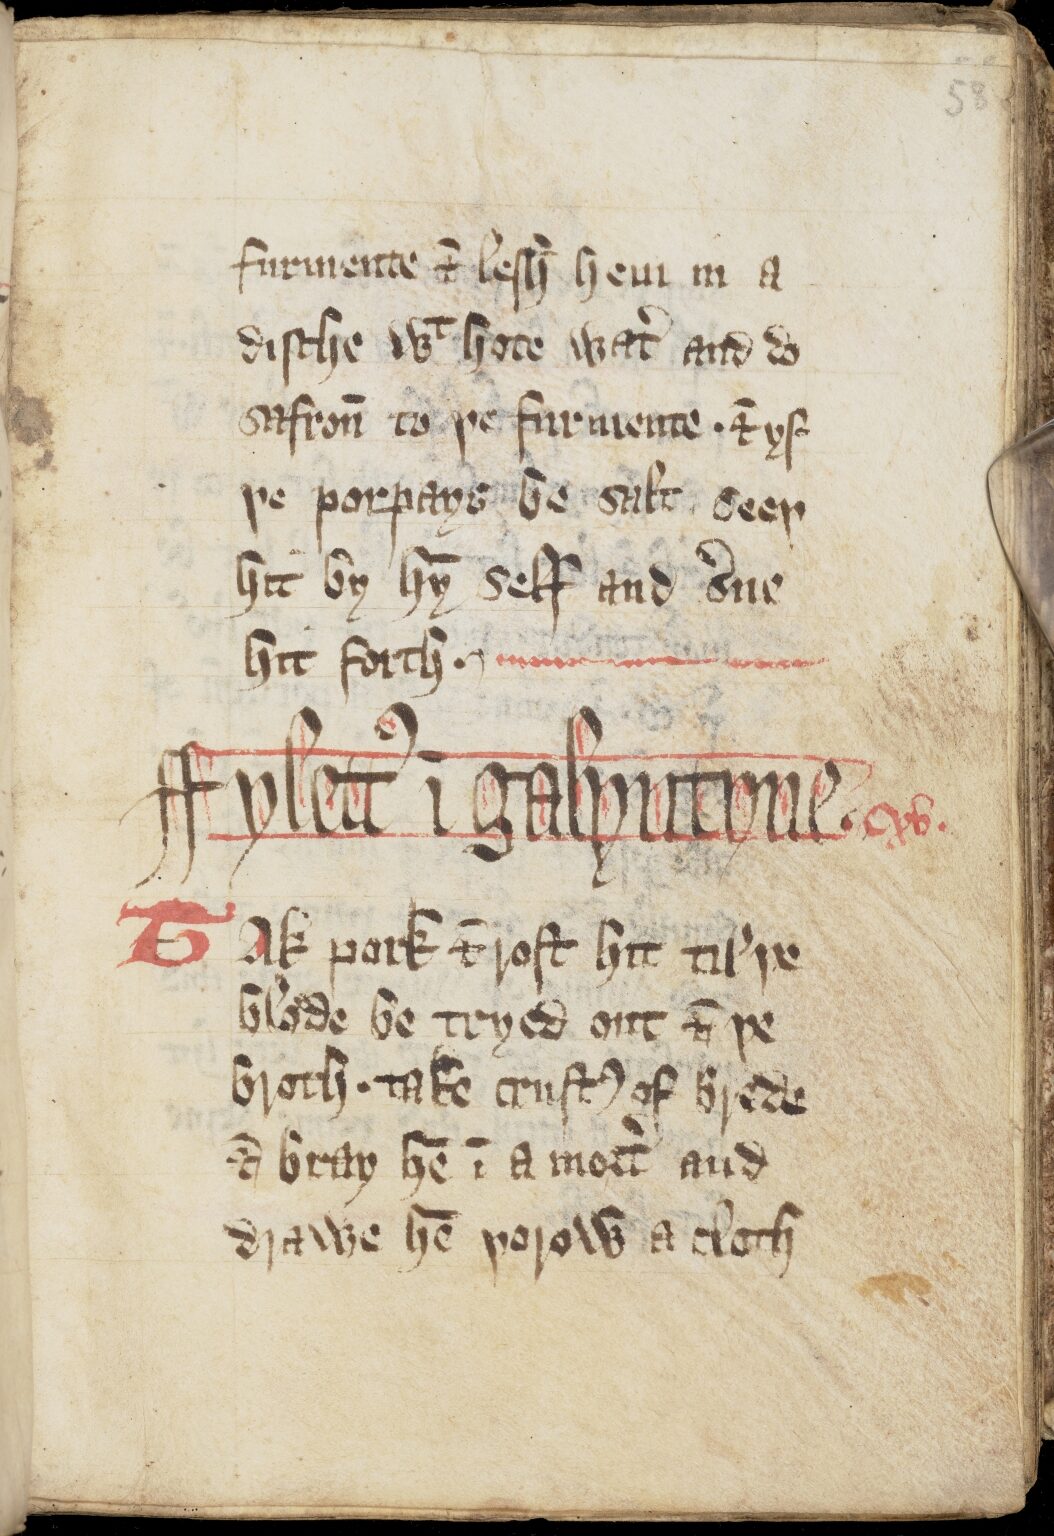 58
furmente & lesh hem in a
dische wt hote wat̉ and do
safron̄ to þe furmente · & yf
þe porpays be salt keep
hit by hȳ self and s̉ue
hit forth ·
ffylettꝭ ī galyntyne · cxv ·
Tak pork & rost hit til þe
blode be tryed out & þe
broth · take crustꝭ of brede
& bray hē ī a mort̉ and
drawe hē þorow a cloth